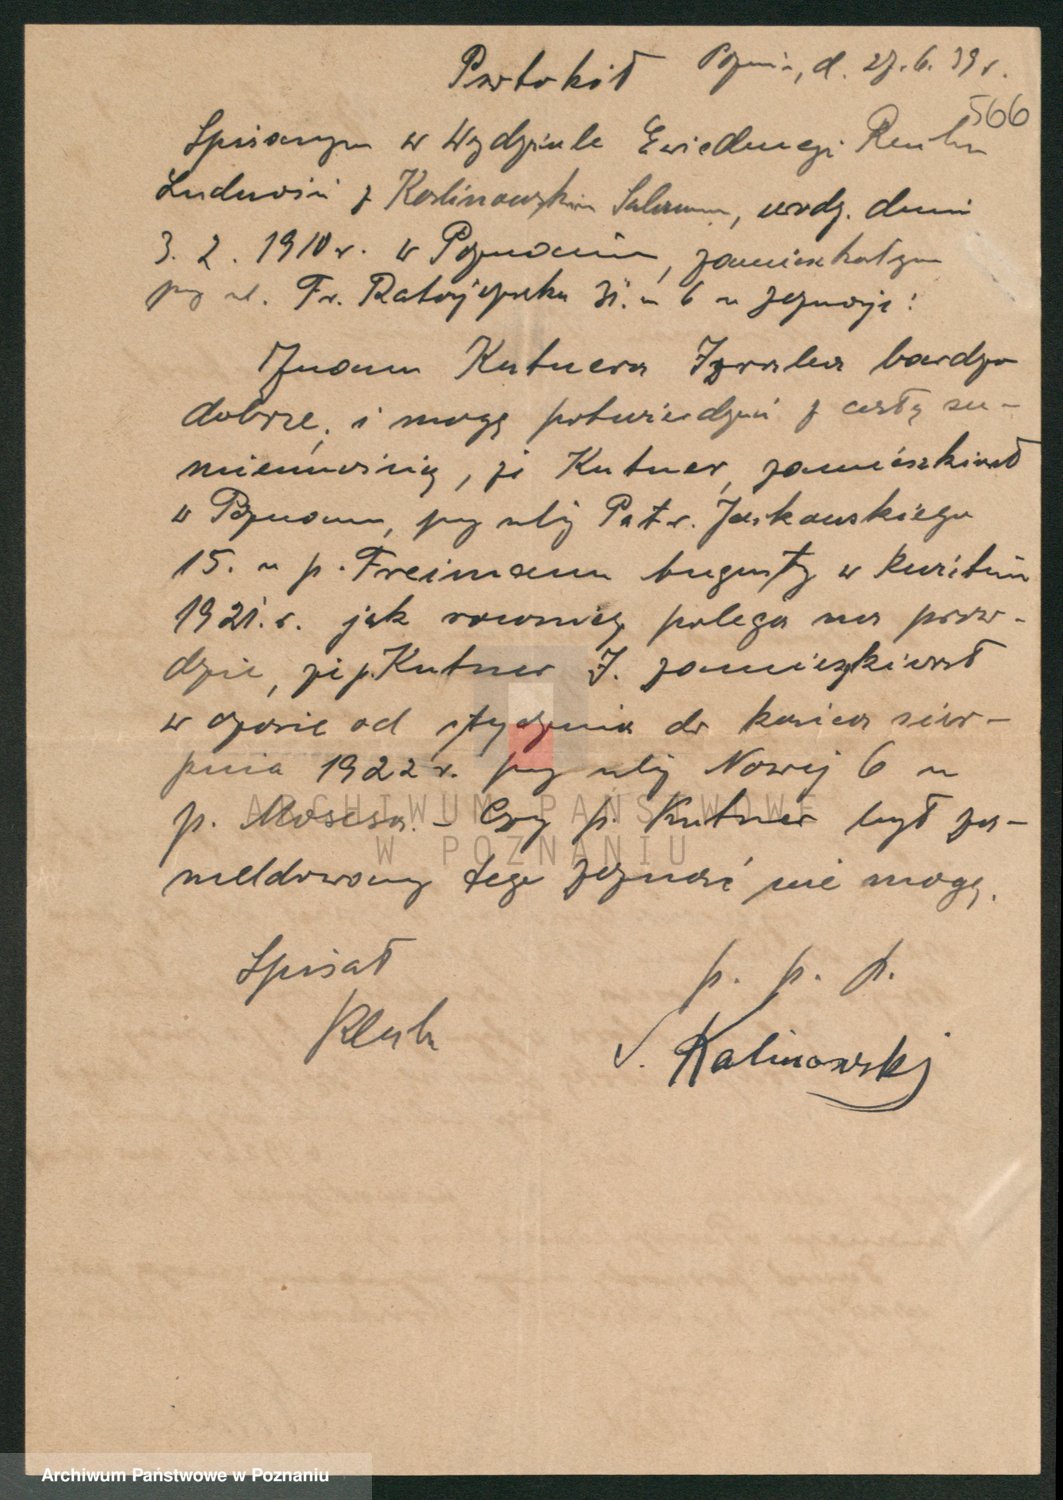 Protokół Poznań, d. 27.6.39 r.
566
Spisanym w Wydziale Ewidencji Ruchu
Ludności z Kalinowskim Salomonem, urodz. dnia
3. 2. 1910 r. w Poznaniu, zamieszkałym
przy ul. Fr. Ratajczaka m 6 zeznaje:
Znam Kutnera Izraela bardzo
dobrze, i mogę potwierdzić z całą su-
miennością, że Kutner zamieszkiwał
w Poznaniu, przy ulicy Patr. Jackowskiego
15. u p. Freimann w kwietniu
1921. r. jak również polega na praw-
dzie, że p. Kutner I. zamieszkiwał
w czasie od stycznia do końca sier-
pnia 1922 r. przy ulicy Nowej 6 u
p. Mosesa. - Czy p. Kutner był za-
meldowany tego zeznać nie mogę.
Spisał p. p. p.
S. Kalinowski
ARCHIWUM PAŃSTWOWE
W POZNANIU
Archiwum Państwowe w Poznaniu